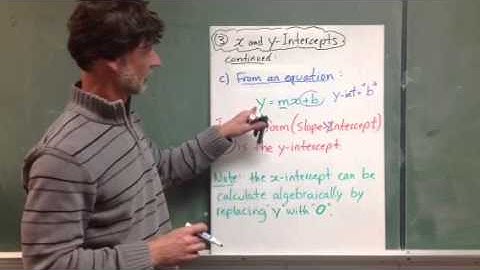 ③ x and y-Intercepts
continued:
c) From an equation:
y = mx+b, y-int = "b"
form (Slope Y Intercept)
is the y-intercept
Note: the x-intercept can be
calculate algebraically by
replacing "y" with "0".